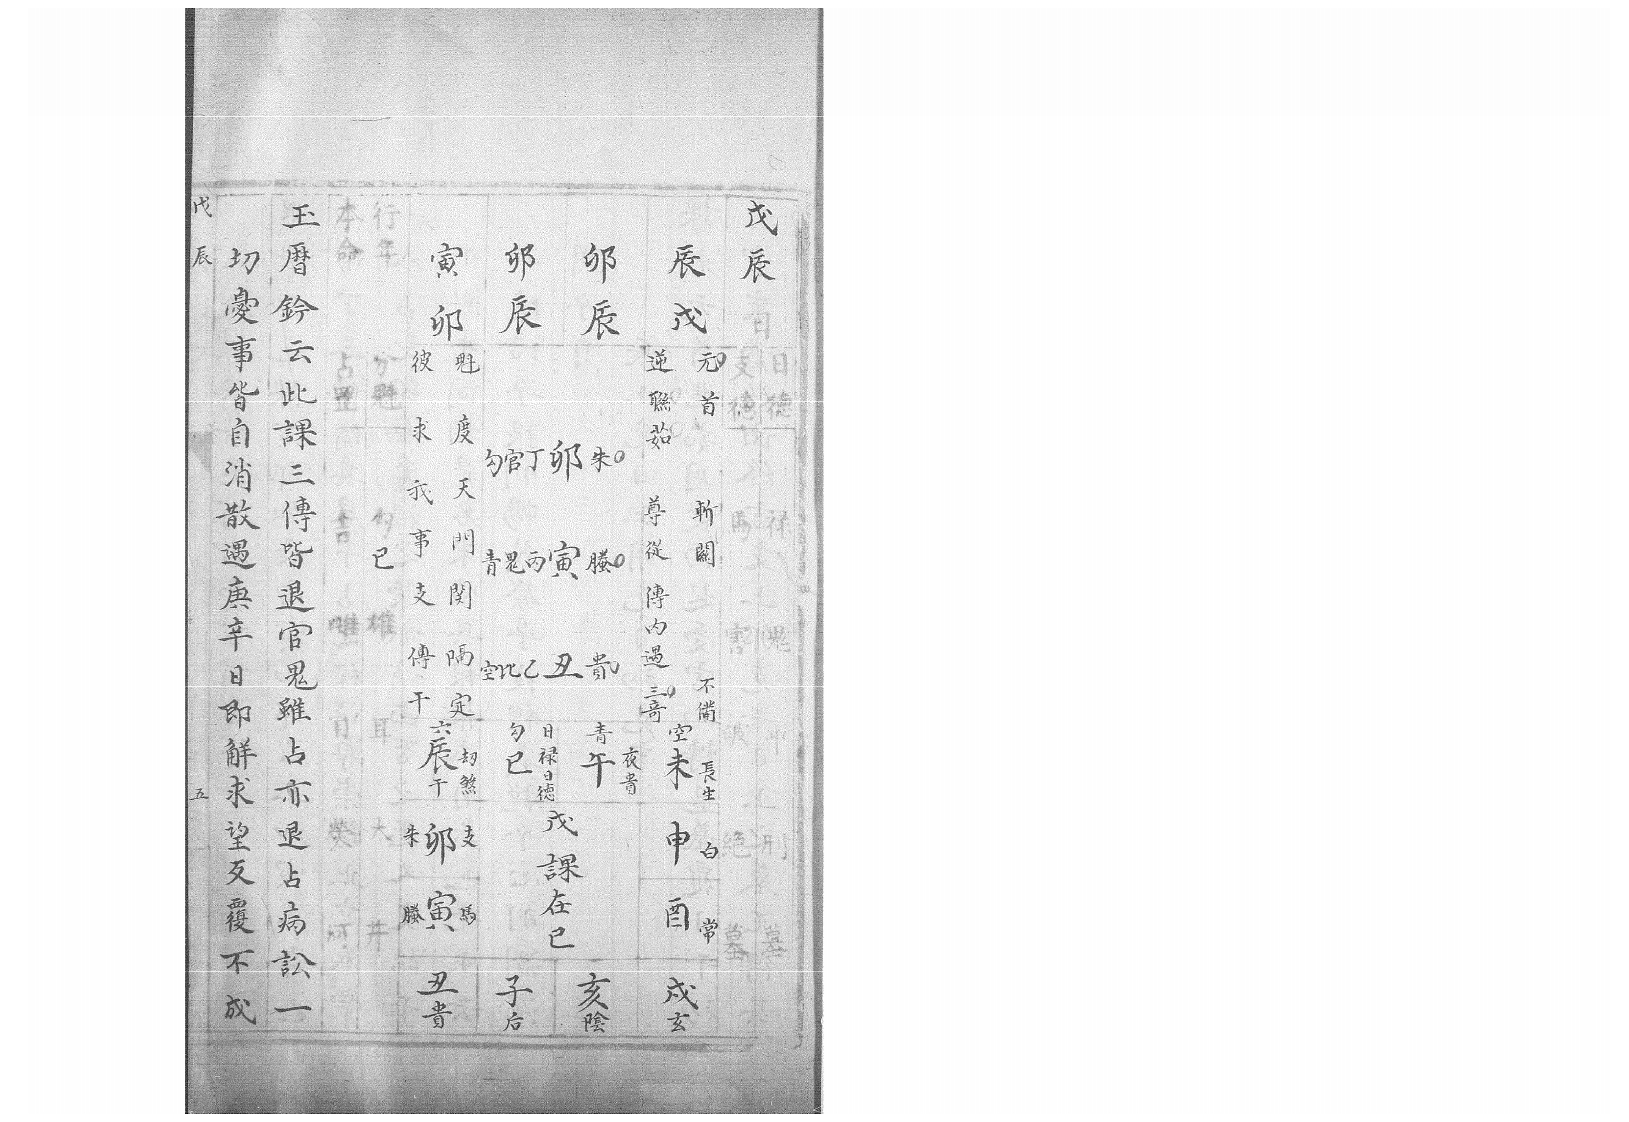 戊辰
辰戌
卯辰
卯辰
寅卯
元首 斬關 不備
逆聯茹 尊從 傳内遇三奇
朱 卯 丁官勾
螣 寅 丙鬼青
貴 丑 乙比空
魁度天門関隔定
彼求我事支傳干
空 未 長生
青 午 夜貴
勾 巳 日禄日德
六 辰 干 刼煞
申 白
戊課在巳
支 卯 朱
酉 常
馬 寅 螣
戌 玄
亥 陰
子 后
丑 貴
日德 禄 鬼 刑 墓
支德 馬 害 破 絕 墓
行年 巳
本命
玉厯鈐云此課三傳皆退官鬼雖占亦退占病訟一
切憂事皆自消散遇庚辛日即解求望反覆不成
戊辰 五